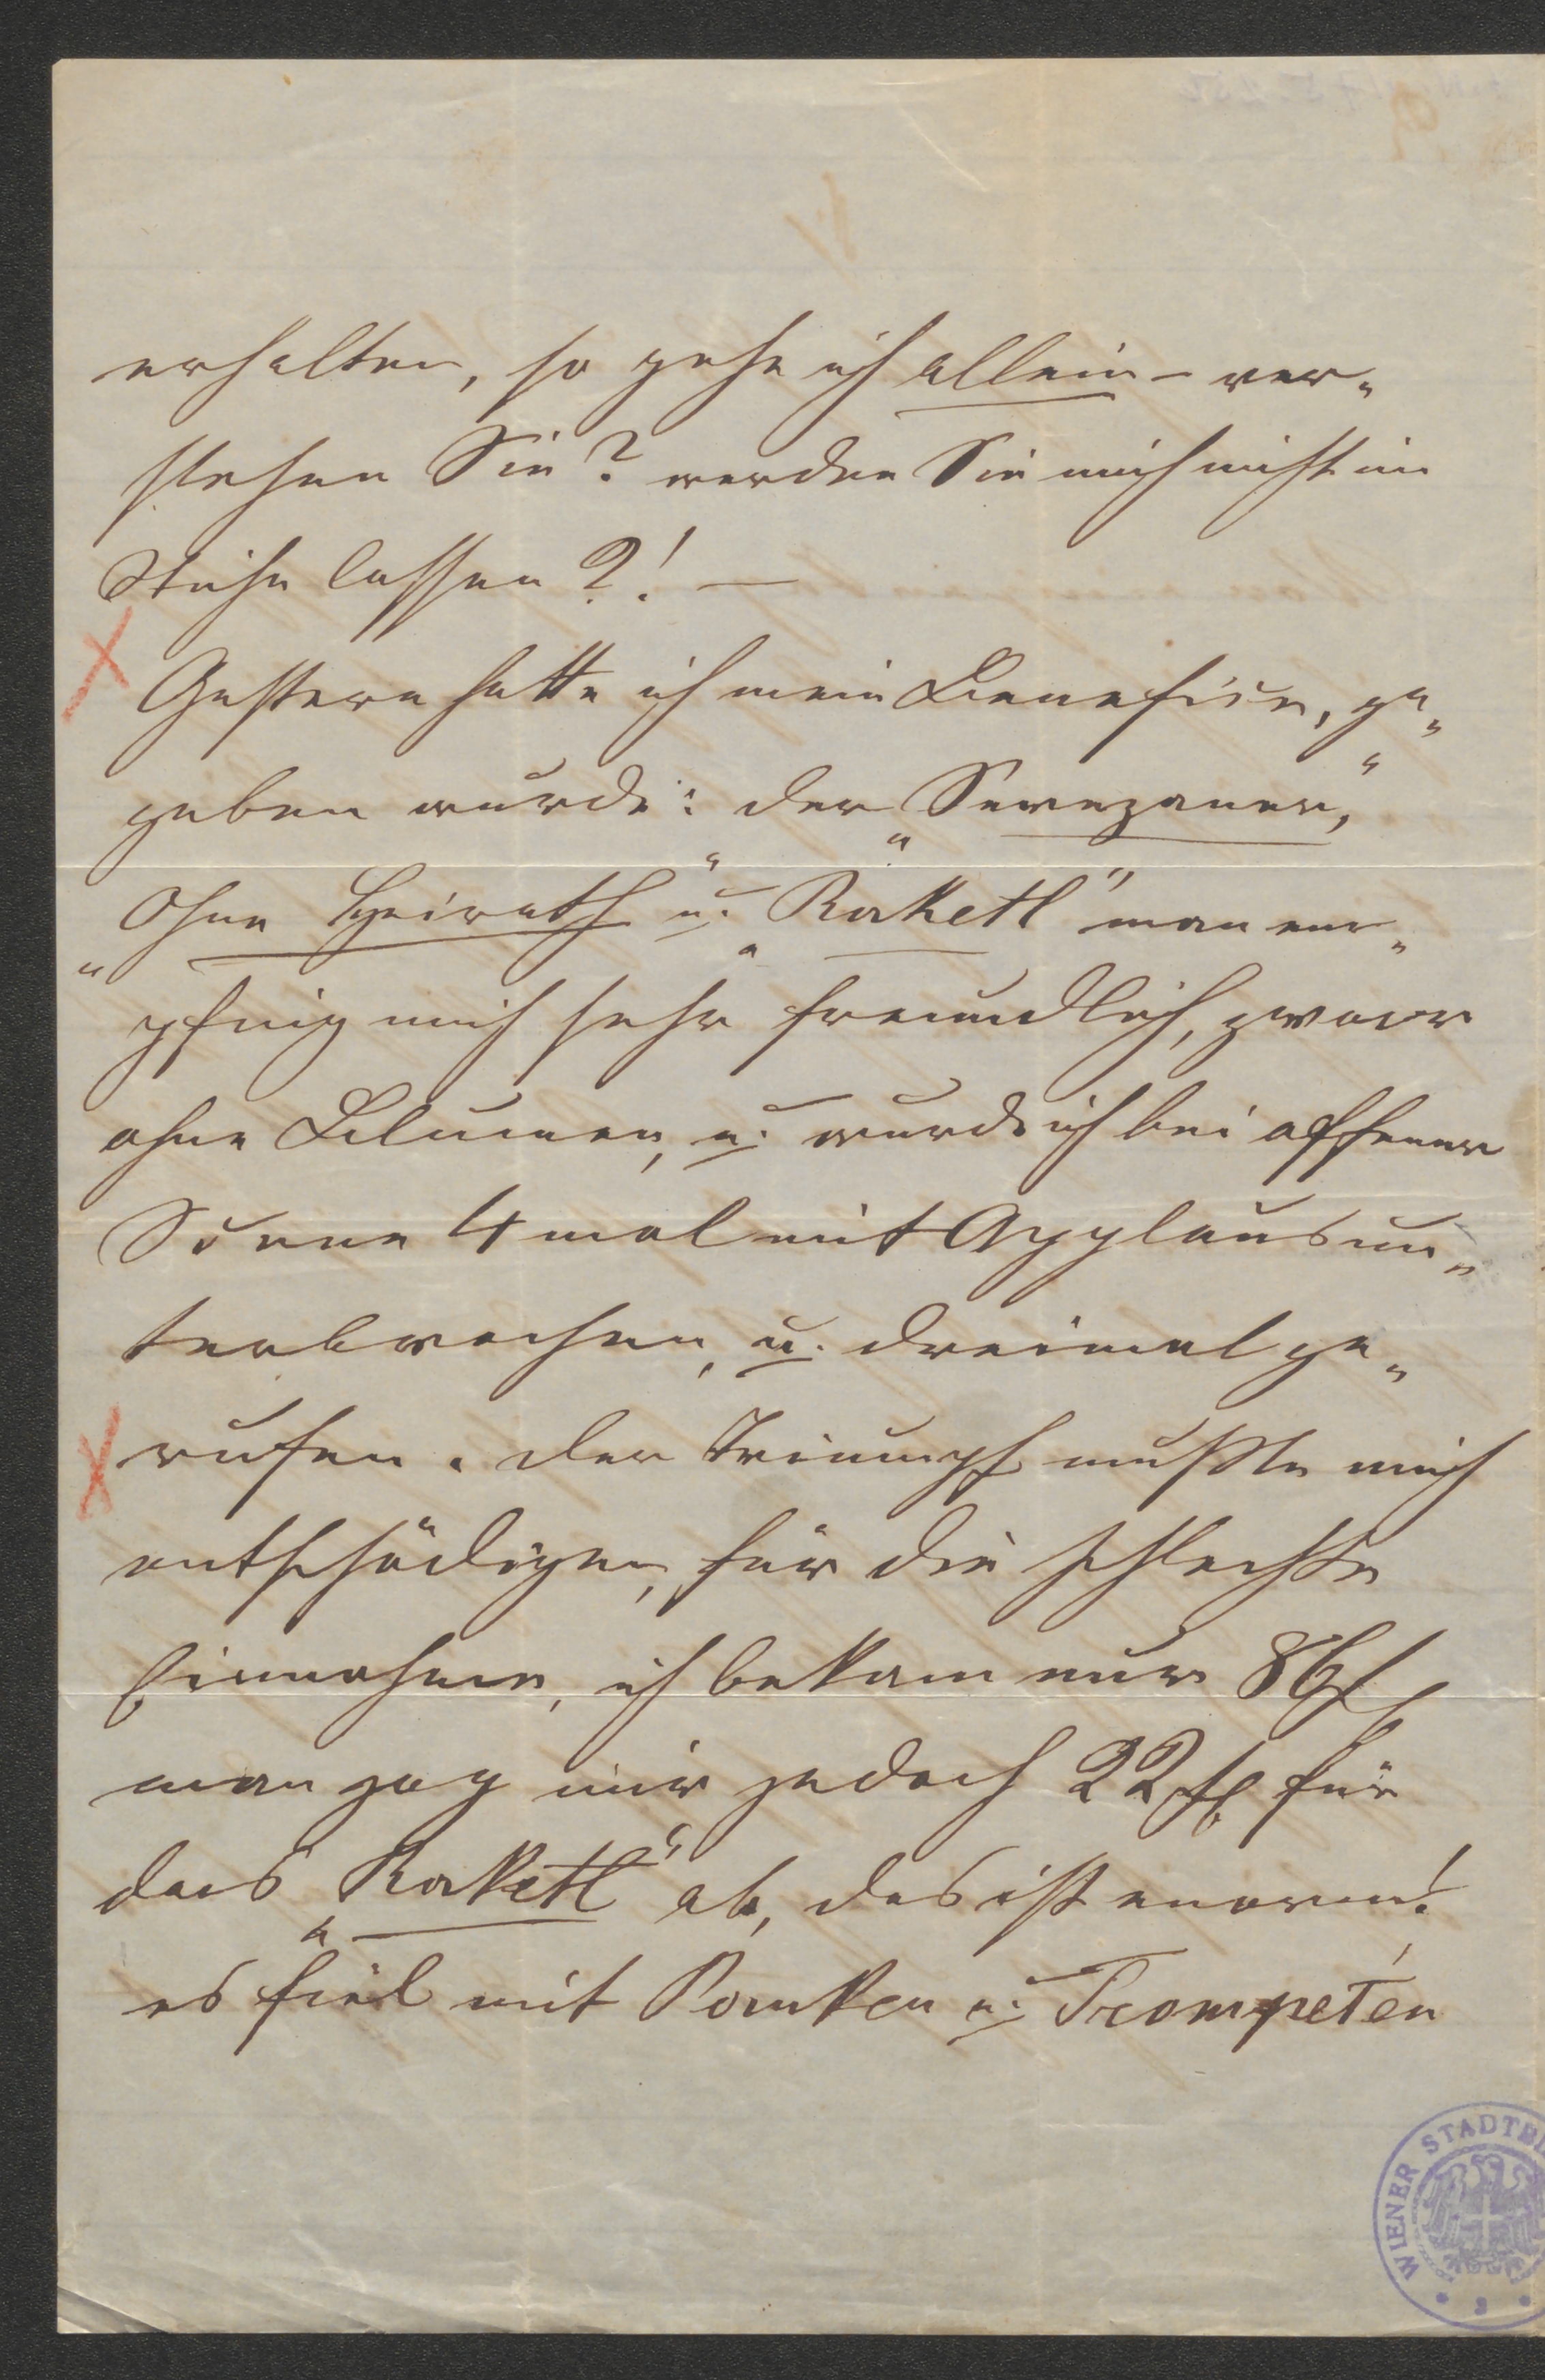 erhalten, so gehe ich allein – ver„
stehen Sie? werden Sie mich nicht im
Stiche lassen?! —
Gestern hatte ich mein Benefice, ge„
geben wurde: der „Serezaner,“
„Ohne Heirath“ u. „Raketl“ man em„
pfing mich sehr freundlich, zwar
ohne Blumen, u. wurde ich bei offener
Scene 4 mal mit Applaus un„
terbrochen, u. dreimal ge„
rufen. der Triumpf mußte mich
entschädigen, für die schlechte
Einnahme, ich bekam nur 86 f
man zog mir jedoch 22 fl für
das „Raketl“ ab, das ist enorm!
es fiel mit Pauken u. Trompeten
WIENER STADTB